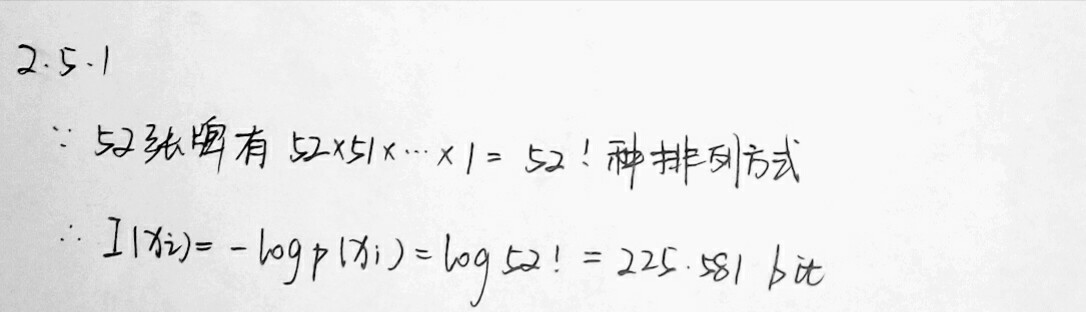 2.5.1
∵ 52张牌有 52×51×⋯×1 = 52! 种排列方式
∴ I(xi) = -log p(xi) = log 52! = 225.581 bit